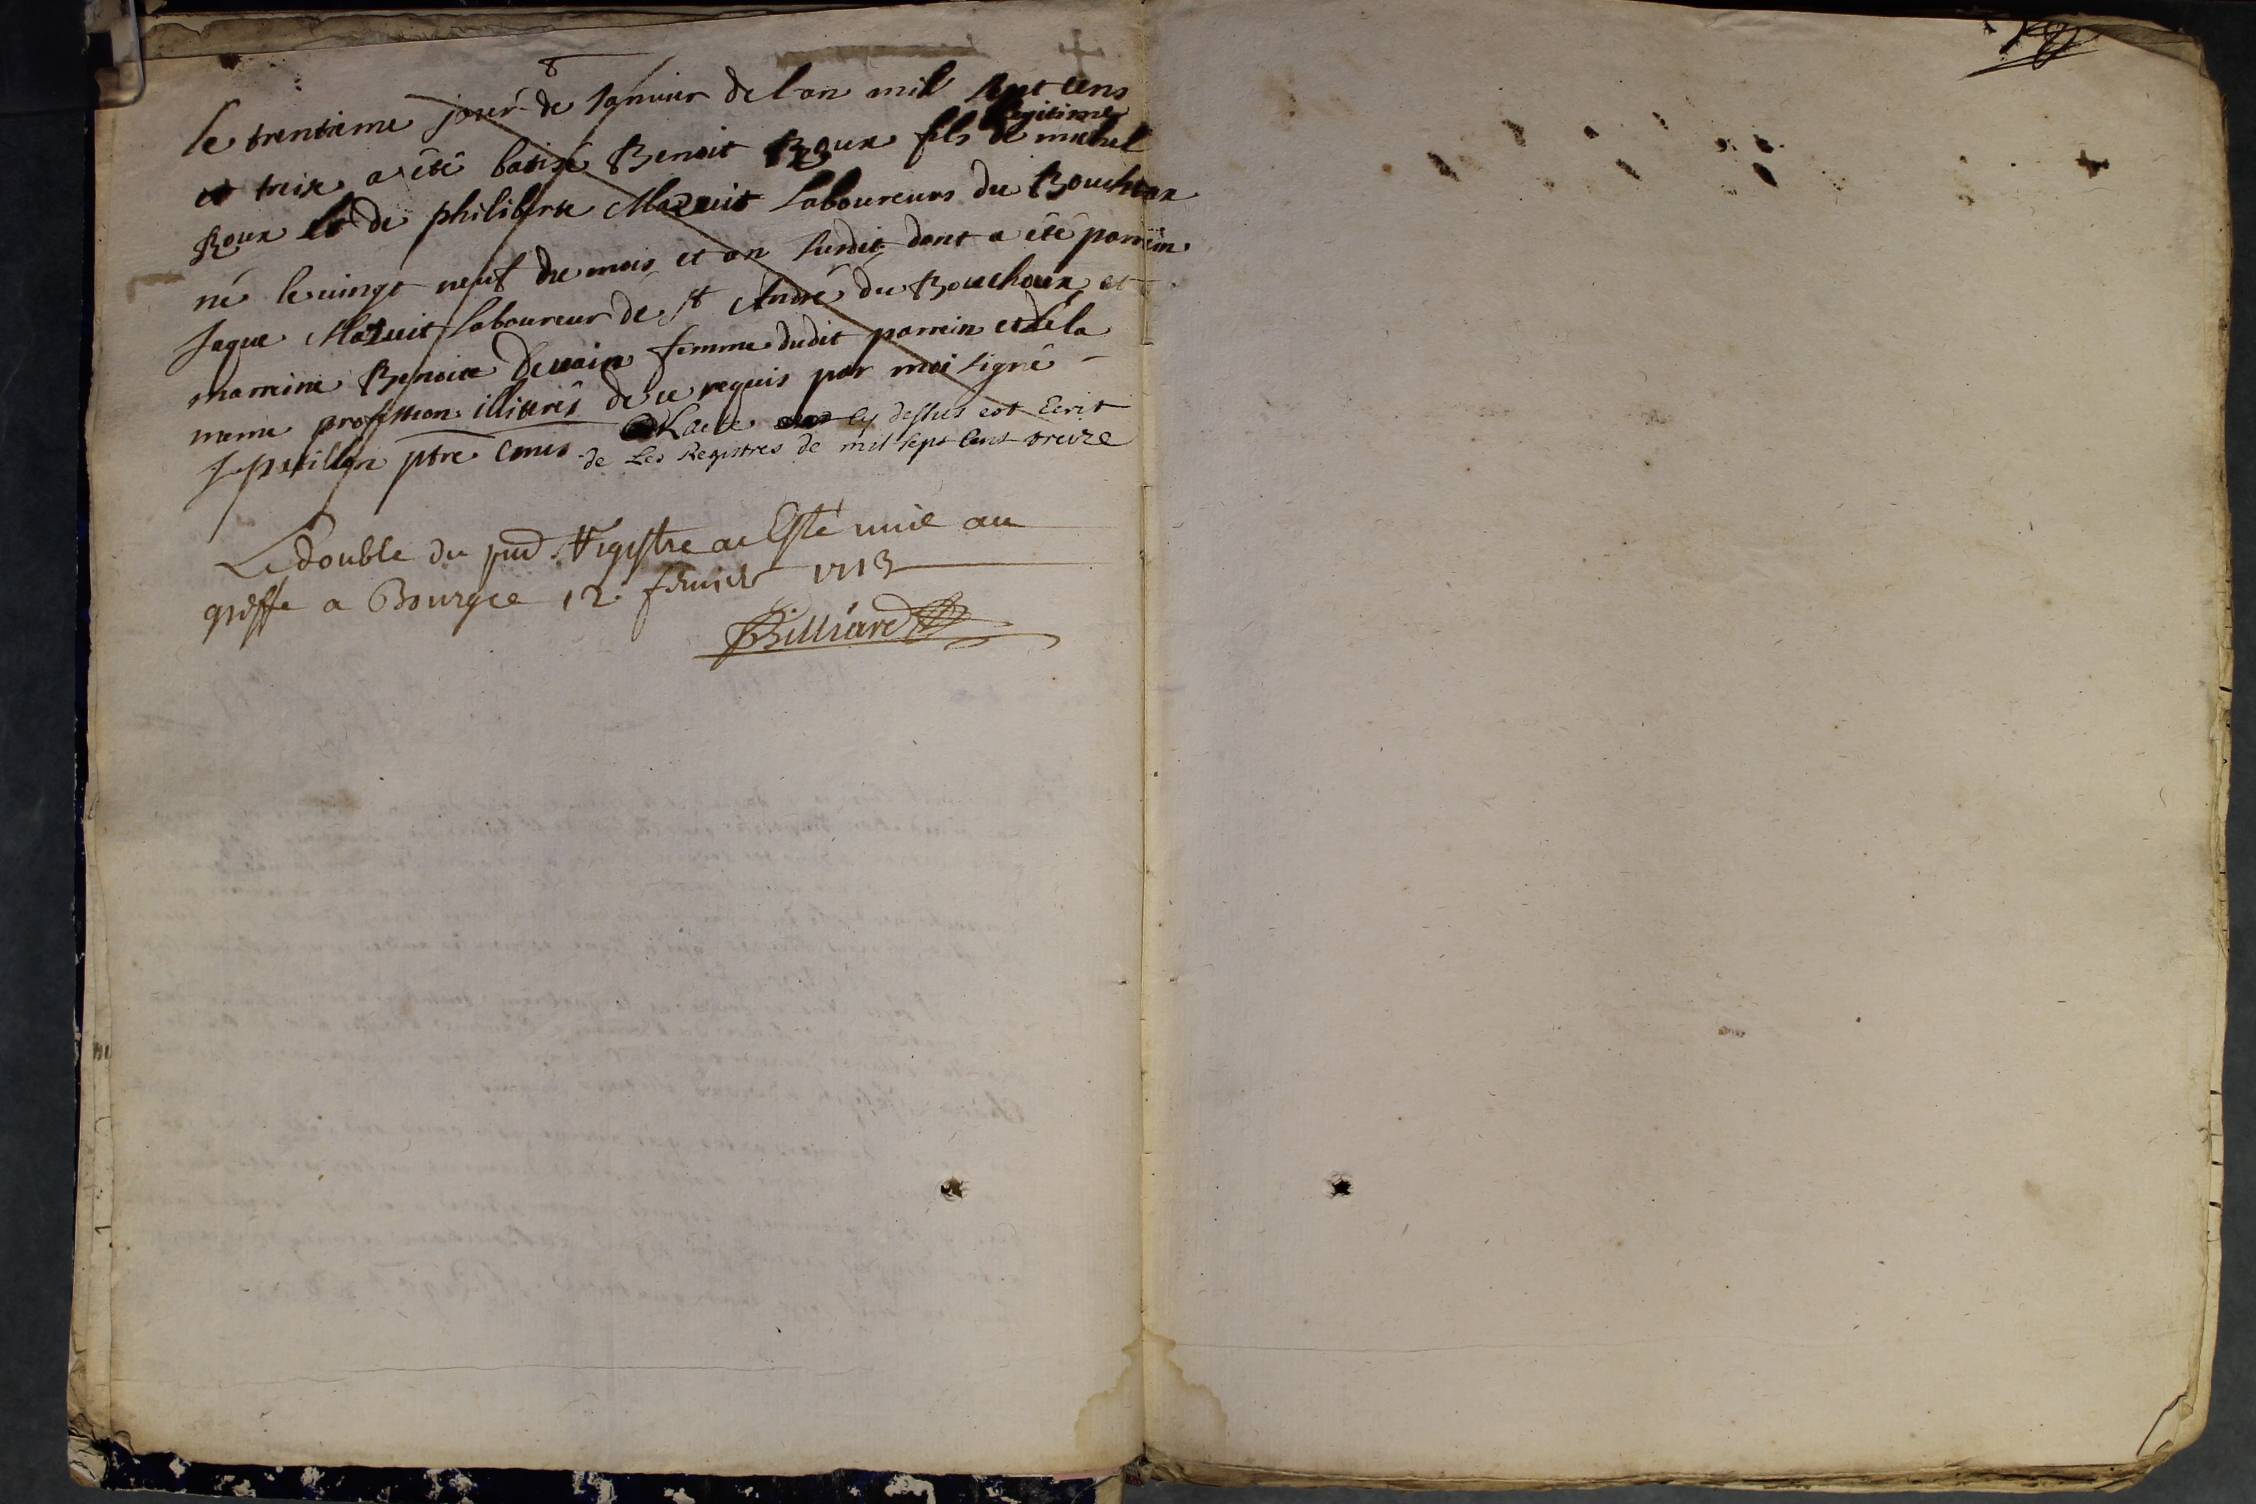 le trentieme jour de Januier de l'an mil sept cens
et treize a êtê batisé Benoit Roux fils legitime de michel
Roux et de philiberte Mazuit Laboureurs du Bouchoux
né le vingt neuf du mois et an susdit dont a êtê parrein
Jaque Mazuit Laboureur de St André du Bouchoux et
marreine Benoite Devain femme dudit parrein et de la
meme profession illiterés de ce requis par moi signé
ptre Curé L'acte cy dessus est Ecrit
de Les Registres de mil sept cens treize
Le double du pnt Registre a Esté mis au
greffe a Bourg ce 12 feurier 1713
Billiard